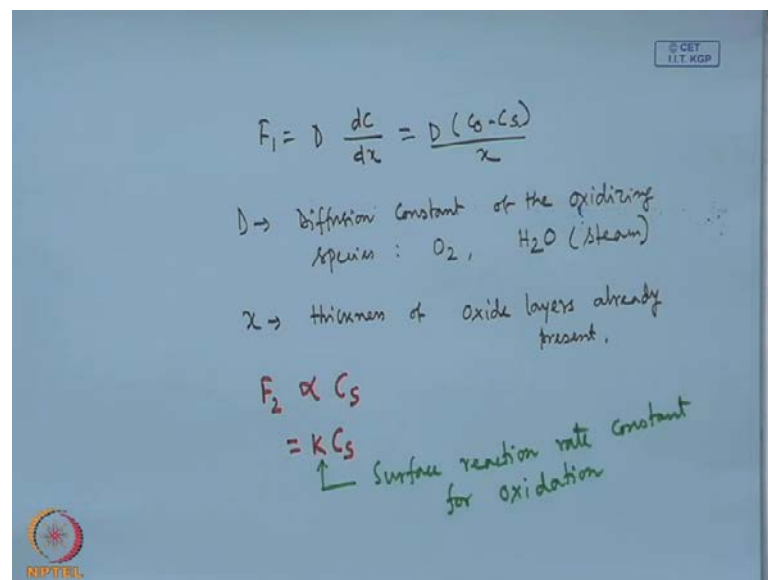 © CET
I.I.T. KGP
F₁ = D dc/dx = D (C₀ - Cs)/x
D → Diffusion constant of the oxidizing
species : O₂, H₂O (steam)
x → thickness of oxide layers already
present.
F₂ ∝ Cs
= K Cs
Surface reaction rate constant
for oxidation
NPTEL